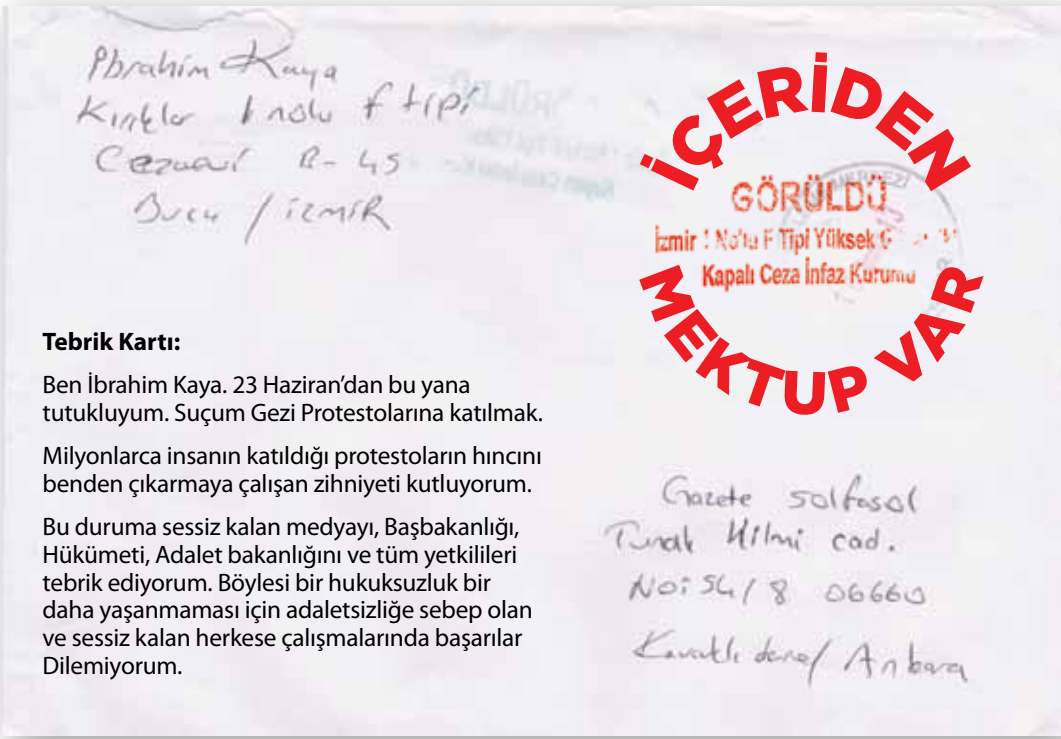 İbrahim Kaya
Kırıklar 1 nolu f tipi
Cezaevi B-45
Buca / İZMİR
İÇERİDEN
GÖRÜLDÜ
İzmir 1 No'lu F Tipi Yüksek
Kapalı Ceza İnfaz Kurumu
MEKTUP VAR
Tebrik Kartı:
Ben İbrahim Kaya. 23 Haziran’dan bu yana
tutukluyum. Suçum Gezi Protestolarına katılmak.
Milyonlarca insanın katıldığı protestoların hıncını
benden çıkarmaya çalışan zihniyeti kutluyorum.
Bu duruma sessiz kalan medyayı, Başbakanlığı,
Hükümeti, Adalet bakanlığını ve tüm yetkilileri
tebrik ediyorum. Böylesi bir hukuksuzluk bir
daha yaşanmaması için adaletsizliğe sebep olan
ve sessiz kalan herkese çalışmalarında başarılar
Dilemiyorum.
Gazete solfasol
Tunalı Hilmi cad.
No: 54/8 06660
Kavaklıdere/ Ankara